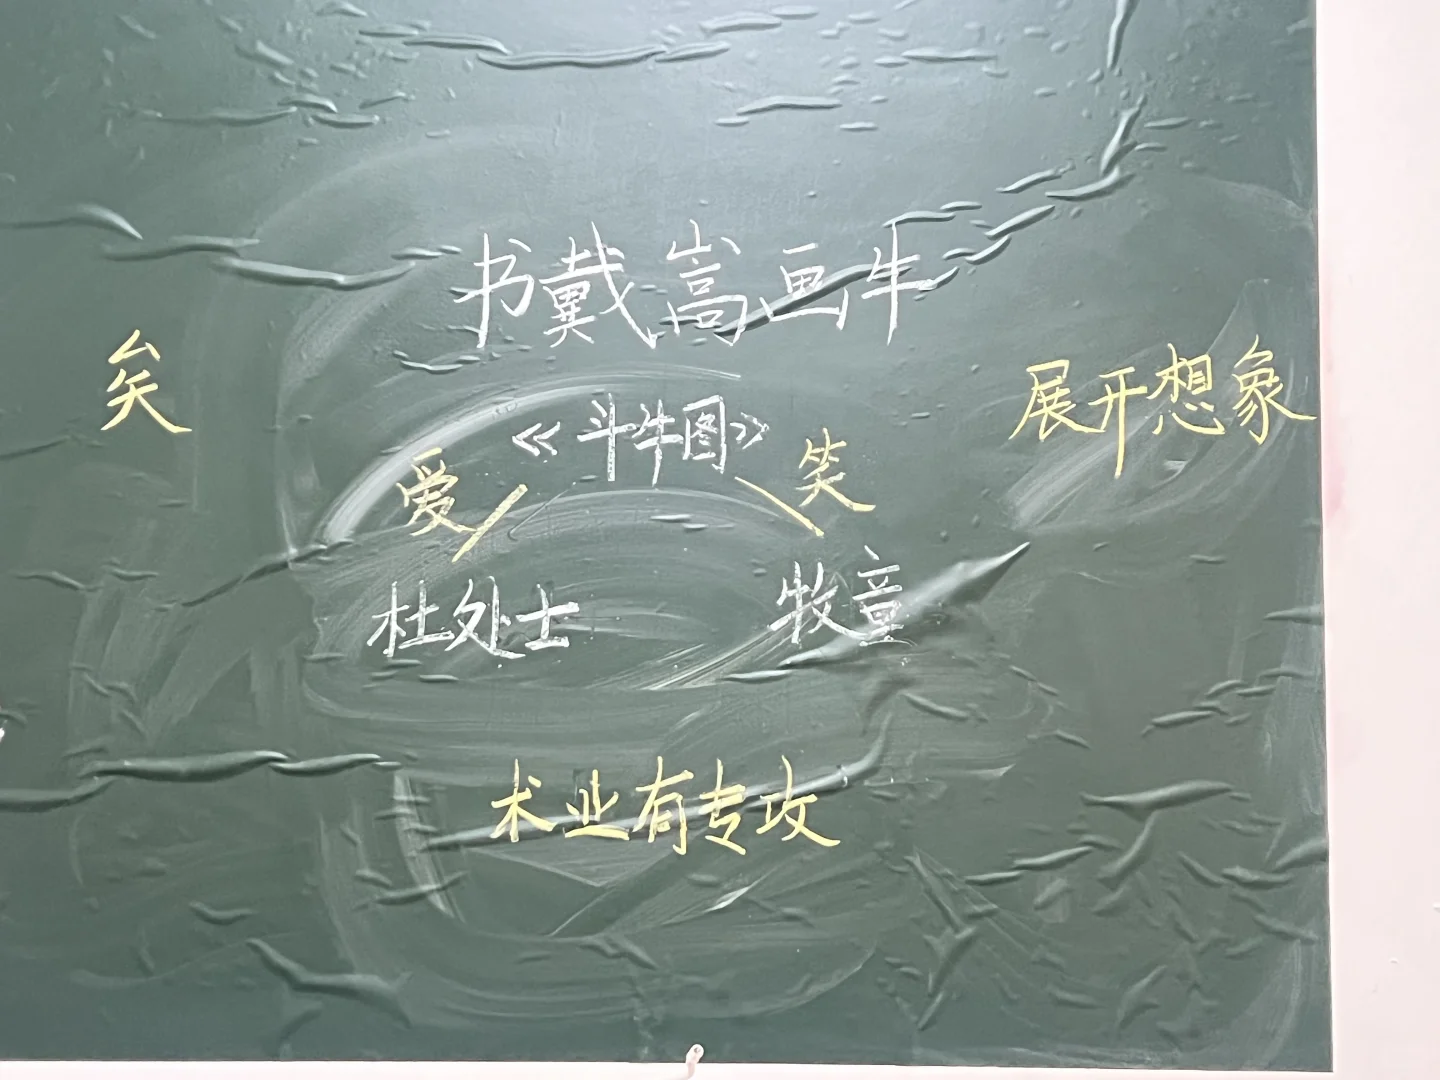 书戴嵩画牛
矣
展开想象
《斗牛图》
爱
笑
杜处士
牧童
术业有专攻